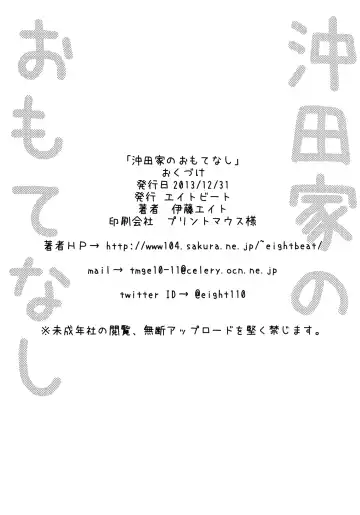 沖田家の
おもてなし
「沖田家のおもてなし」
おくづけ
発行日2013/12/31
発行 エイトビート
著者　伊藤エイト
印刷会社　プリントマウス様
著者HP→ http://www104.sakura.ne.jp/~eightbeat/
mail→ tmge10-11@celery.ocn.ne.jp
twitter ID→ @eight110
※未成年社の閲覧、無断アップロードを堅く禁じます。